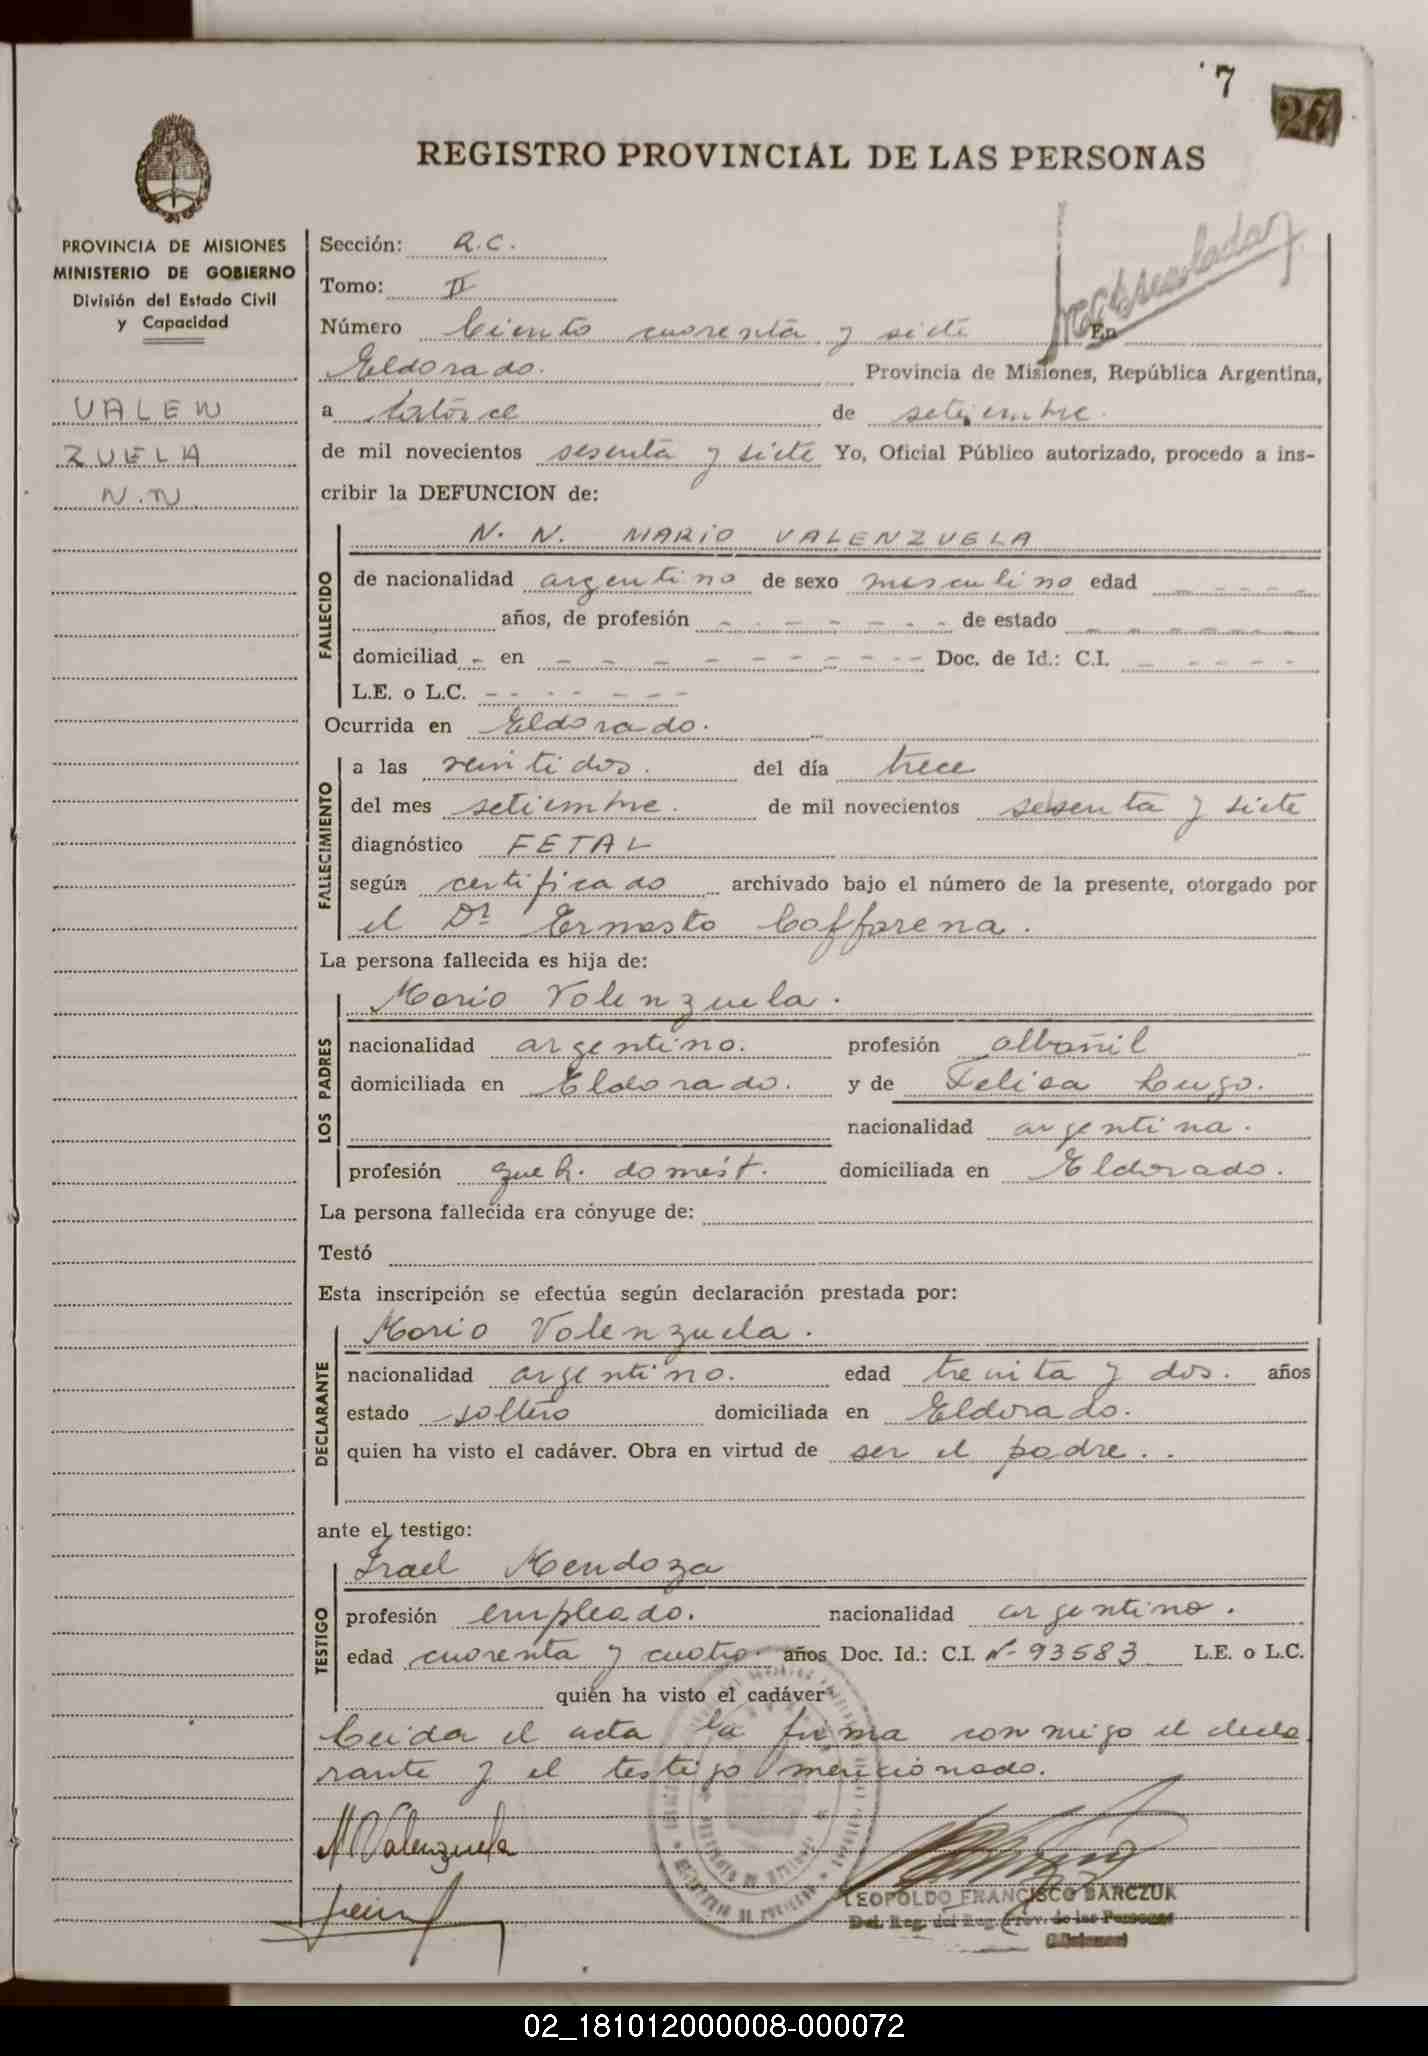 7
27
REGISTRO PROVINCIAL DE LAS PERSONAS
PROVINCIA DE MISIONES
MINISTERIO DE GOBIERNO
División del Estado Civil
y Capacidad
VALEN
ZUELA
N.N.
Sección: R.C.
Tomo: II
Número Ciento cuarenta y siete En
Eldorado. Provincia de Misiones, República Argentina,
a catorce de setiembre.
de mil novecientos sesenta y siete Yo, Oficial Público autorizado, procedo a ins-
cribir la DEFUNCION de:
FALLECIDO
N. N. MARIO VALENZUELA
de nacionalidad argentino de sexo masculino edad - - - - -
años, de profesión - - - - - - - de estado - - - - - -
domiciliad - en - - - - - - - - - - Doc. de Id.: C.I. - - - - -
L.E. o L.C. - - - - - - -
Ocurrida en Eldorado.
FALLECIMIENTO
a las veintidos. del día trece
del mes setiembre. de mil novecientos sesenta y siete
diagnóstico FETAL
según certificado archivado bajo el número de la presente, otorgado por
el Dr Ernesto Coffarena.
La persona fallecida es hija de:
LOS PADRES
Mario Valenzuela.
nacionalidad argentino. profesión albañil
domiciliada en Eldorado. y de Felisa Lugo.
nacionalidad argentina.
profesión queh. domést. domiciliada en Eldorado.
La persona fallecida era cónyuge de:
Testó
Esta inscripción se efectúa según declaración prestada por:
DECLARANTE
Mario Valenzuela.
nacionalidad argentino. edad treinta y dos. años
estado soltero domiciliada en Eldorado.
quien ha visto el cadáver. Obra en virtud de ser el padre..
ante el testigo:
TESTIGO
Irael Mendoza
profesión empleado. nacionalidad argentino.
edad cuarenta y cuatro. años Doc. Id.: C.I. Nº 93583 L.E. o L.C.
quién ha visto el cadáver
Leida el acta la firma conmigo el decla
rante y el testigo mencionado.
M Valenzuela
LEOPOLDO FRANCISCO BARCZUK
Del. Reg. del Reg. Prov. de las Personas
(Misiones)
02_181012000008-000072